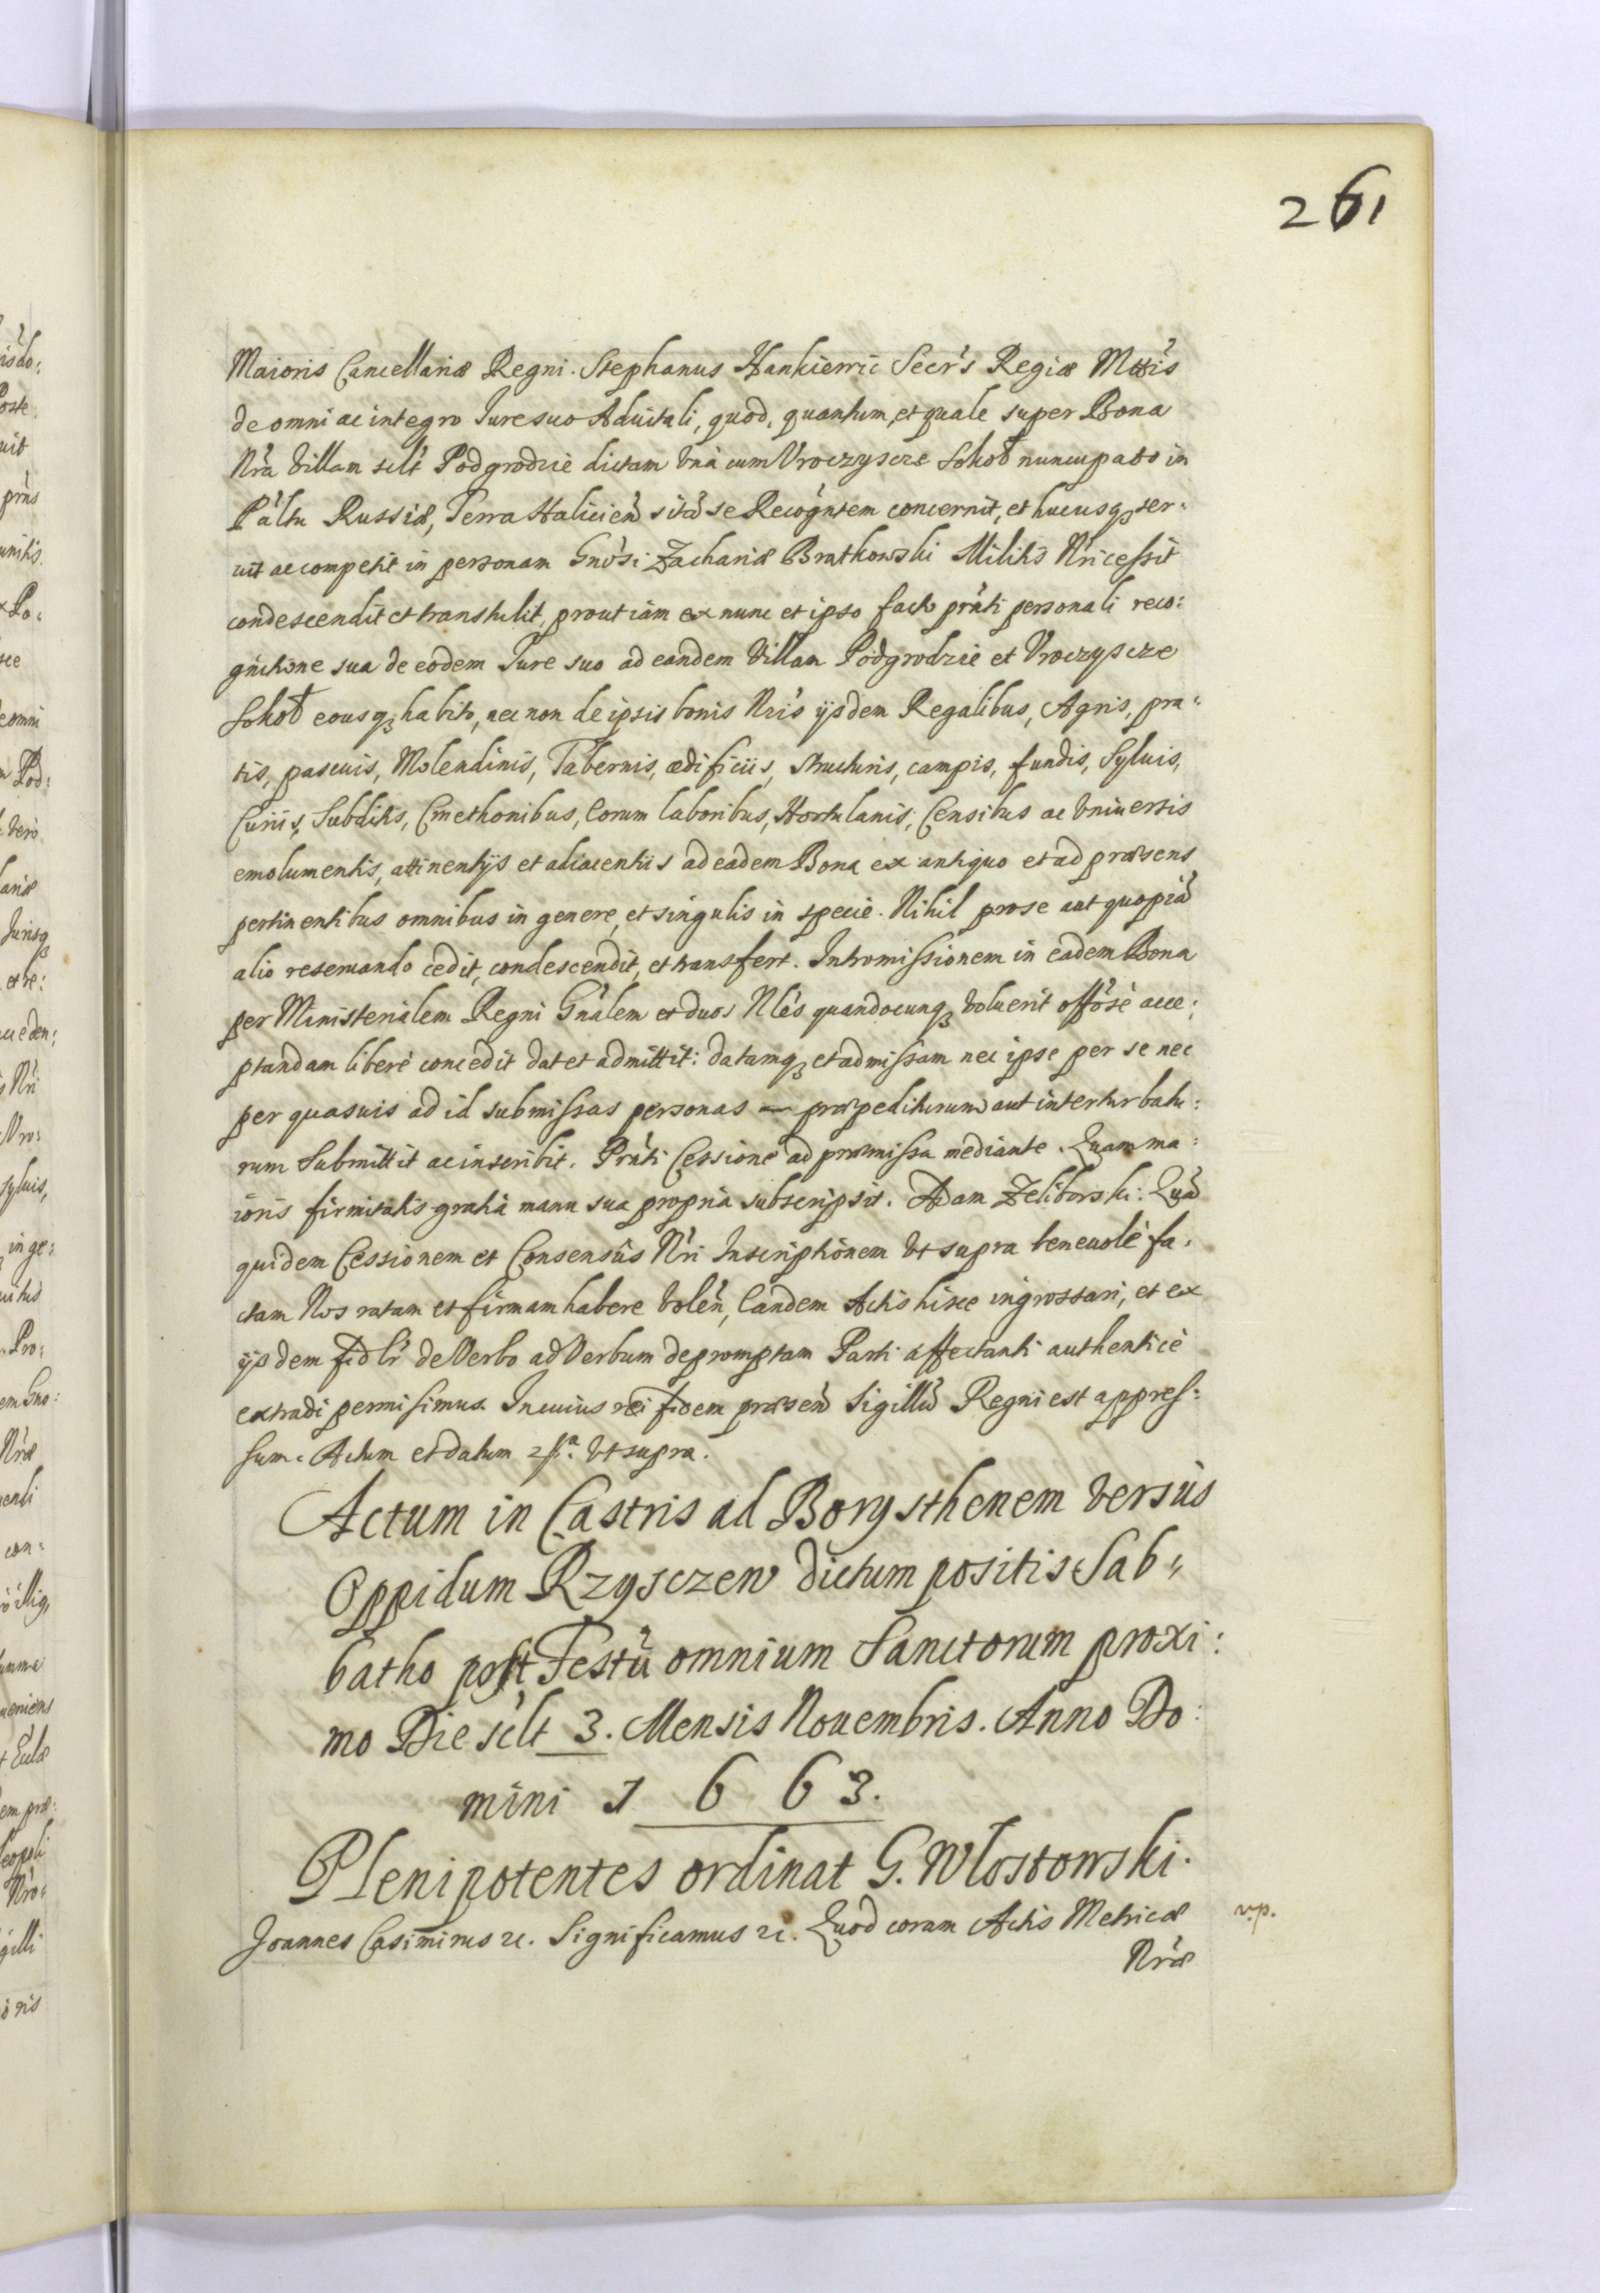 261
Maioris Cancellariæ Regni. Stephanus Hankiewic Secr's Regiæ Mttis
de omni ac integro Iure suo Aduitali, quod, quantum, et quale super Bona
Nra Villam sclt Podgrodzie dictam Vná cum Vroczyscze Sokoł nuncupato in
Páltu Russiæ, Terra Halicień sitã se Recogntem concernit, et hucusq ser:
uit ac competit in personam Gnosi Zachariæ Bratkowski Militis Nri cessit
condescendit et transtulit, prout iám ex nunc et ipso facto prńti personali reco:
gnitione sua de eodem Iure suo ad eandem Villam Podgrodzie et Vroczyscze
Sokoł eousq habito, nec non de ipsis bonis Nris ijsdem Regalibus, Agris, pra:
tis, pascuis, Molendinis, Tabernis, ædificiis, structuris, campis, fundis, Syluis,
Curiis, Subditis, Cmethonibus, Eorum laboribus, Hortulanis, Censibus ac Vniuersis
emolumentis, attinentijs et adiacentiis ad eadem Bona ex antiquo et ad præsens
pertinentibus omnibus in genere, et singulis in specie. Nihil pro se aut quopiã
alio reseruando cedit, condescendit, et transfert. Intromissionem in eadem Bona
per Ministerialem Regni Gnálem et duos Nles quandocunq Voluerit offose acce:
ptandam liberè concedit dat et admittit: datamq et admissam nec ipse per se nec
per quasuis ad id submissas personas præpediturum aut inturbatu:
rum Submittit ac inscribit. Prńti Cessione ad præmissa mediante. Quam ma:
ioris firmitatis gratiá manu sua propriá subscripsit. Adam Zeliborski. Quã
quidem Cessionem et Consensûs Nri Inscriptionem Vt supra beneuolè fa:
ctam Nos ratam et firmam habere Voleń, Eandem Actis hisce ingrossari, et ex
ijsdem fidlr de Verbo ad Verbum depromptam Parti affectanti authenticè
extradi permisimus. In cuius rei fidem præseń Sigillũ Regni est appres:
sum. Actum et datum Vt supra.
Actum in Castris ad Borysthenem versùs
Oppidum Rzysczew dictum positis Sab:
batho post Festũ omnium Sanctorum proxi:
mo Die sclt 3. Mensis Nouembris. Anno Do:
mini 1663.
Plenipotentes ordinat G. Wlostowski.
Joannes Casimirus &c. Significamus &c. Quod coram Actis Metricæ
v.p.
Nræ